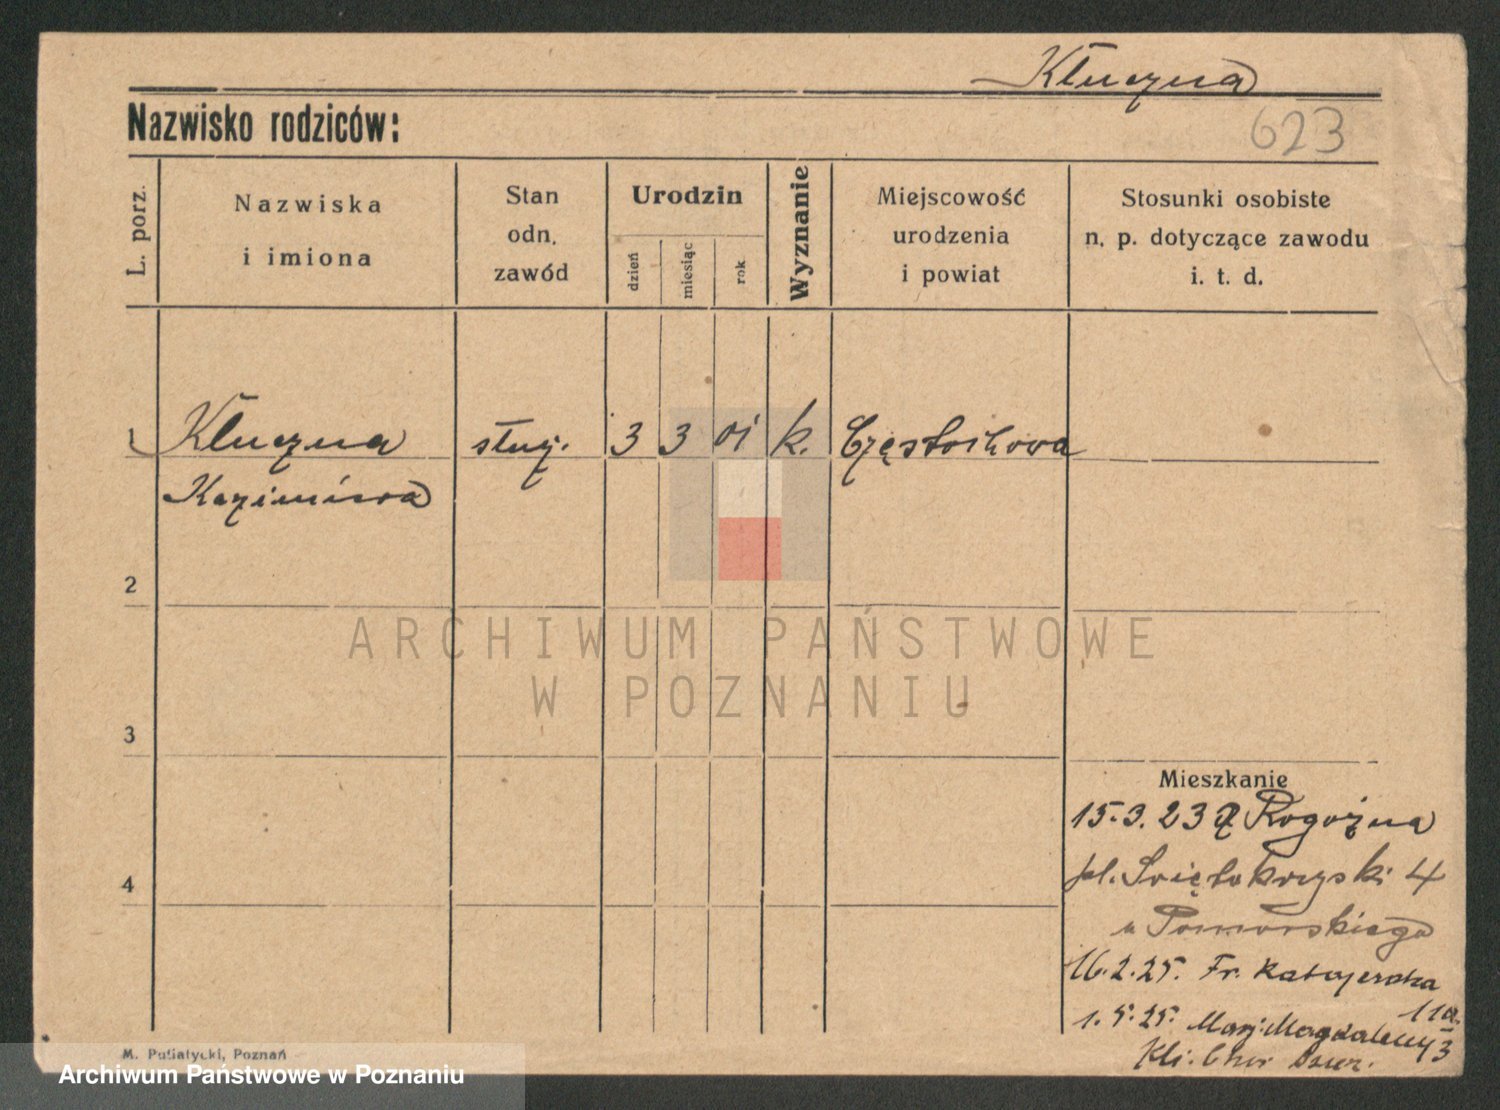 Kłuczna
Nazwisko rodziców:
623
L. porz.
Nazwiska
i imiona
Stan
odn.
zawód
Urodzin
dzień
miesiąc
rok
Wyznanie
Miejscowość
urodzenia
i powiat
Stosunki osobiste
n. p. dotyczące zawodu
i. t. d.
1 Kłuczna służ. 3 3 01 k. Częstochowa
Kazimiera
2
ARCHIWUM PAŃSTWOWE
W POZNANIU
3
Mieszkanie
15.3.23 z Rogoźna
4
pl. Świętokrzyski 4
u Pomorskiego
16.2.25. Fr. Ratajczaka
11a
1.5.25. Marj. Magdaleny 3
M. Putiatycki, Poznań
Archiwum Państwowe w Poznaniu